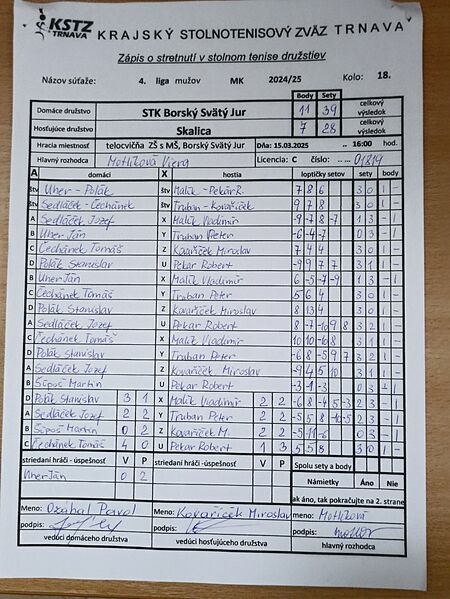 KSTZ
TRNAVA
KRAJSKÝ STOLNOTENISOVÝ ZVÄZ TRNAVA
Zápis o stretnutí v stolnom tenise družstiev
Názov súťaže: 4. liga mužov MK 2024/25 Kolo: 18.
Body Sety
Domáce družstvo STK Borský Svätý Jur 11 39 celkový výsledok
Hosťujúce družstvo Skalica 7 28 celkový výsledok
Hracia miestnosť telocvičňa ZŠ s MŠ, Borský Svätý Jur Dňa: 15.03.2025 .. 16:00 hod.
Hlavný rozhodca Motlíková Viera Licencia: C číslo: .. .. 01819
A domáci X hostia loptičky setov sety body
štv Uher - Polák štv Malík - Pekár R. 7 8 6 3 0 1 -
štv Sedláček - Čechánek štv Truban - Kovaříček 9 7 8 3 0 1 -
A Sedláček Jozef X Malík Vladimír -9 -7 8 -7 1 3 - 1
B Uher Ján Y Truban Peter -6 -4 -7 0 3 - 1
C Čechánek Tomáš Z Kovaříček Miroslav 7 4 4 3 0 1 -
D Polák Stanislav U Pekár Robert -9 9 7 7 3 1 1 -
B Uher Ján X Malík Vladimír 6 -5 -7 -9 1 3 - 1
C Čechánek Tomáš Y Truban Peter 5 6 4 3 0 1 -
D Polák Stanislav Z Kovaříček Miroslav 8 13 4 3 0 1 -
A Sedláček Jozef U Pekár Robert 8 -7 -10 9 8 3 2 1 -
C Čechánek Tomáš X Malík Vladimír 10 10 -10 8 3 1 1 -
D Polák Stanislav Y Truban Peter -6 8 -5 9 7 3 2 1 -
A Sedláček Jozef Z Kovaříček Miroslav -9 4 5 10 3 1 1 -
B Šupoš Martin U Pekár Robert -3 -1 -3 0 3 - 1
D Polák Stanislav 3 1 X Malík Vladimír 2 2 -6 8 -4 5 -3 2 3 - 1
A Sedláček Jozef 2 2 Y Truban Peter 2 2 -5 5 8 -10 -5 2 3 - 1
B Šupoš Martin 0 2 Z Kovaříček M. 2 2 -5 -11 -6 0 3 - 1
C Čechánek Tomáš 4 0 U Pekár Robert 1 3 5 5 8 3 0 1 -
striedaní hráči - úspešnosť V P striedaní hráči - úspešnosť V P Spolu sety a body
Uher Ján 0 2 Námietky Áno Nie
ak áno, tak pokračujte na 2. strane
Meno: Ožábal Pavol Meno: Kovaříček Miroslav meno: Motlíková
podpis: podpis: podpis:
vedúci domáceho družstva vedúci hosťujúceho družstva hlavný rozhodca